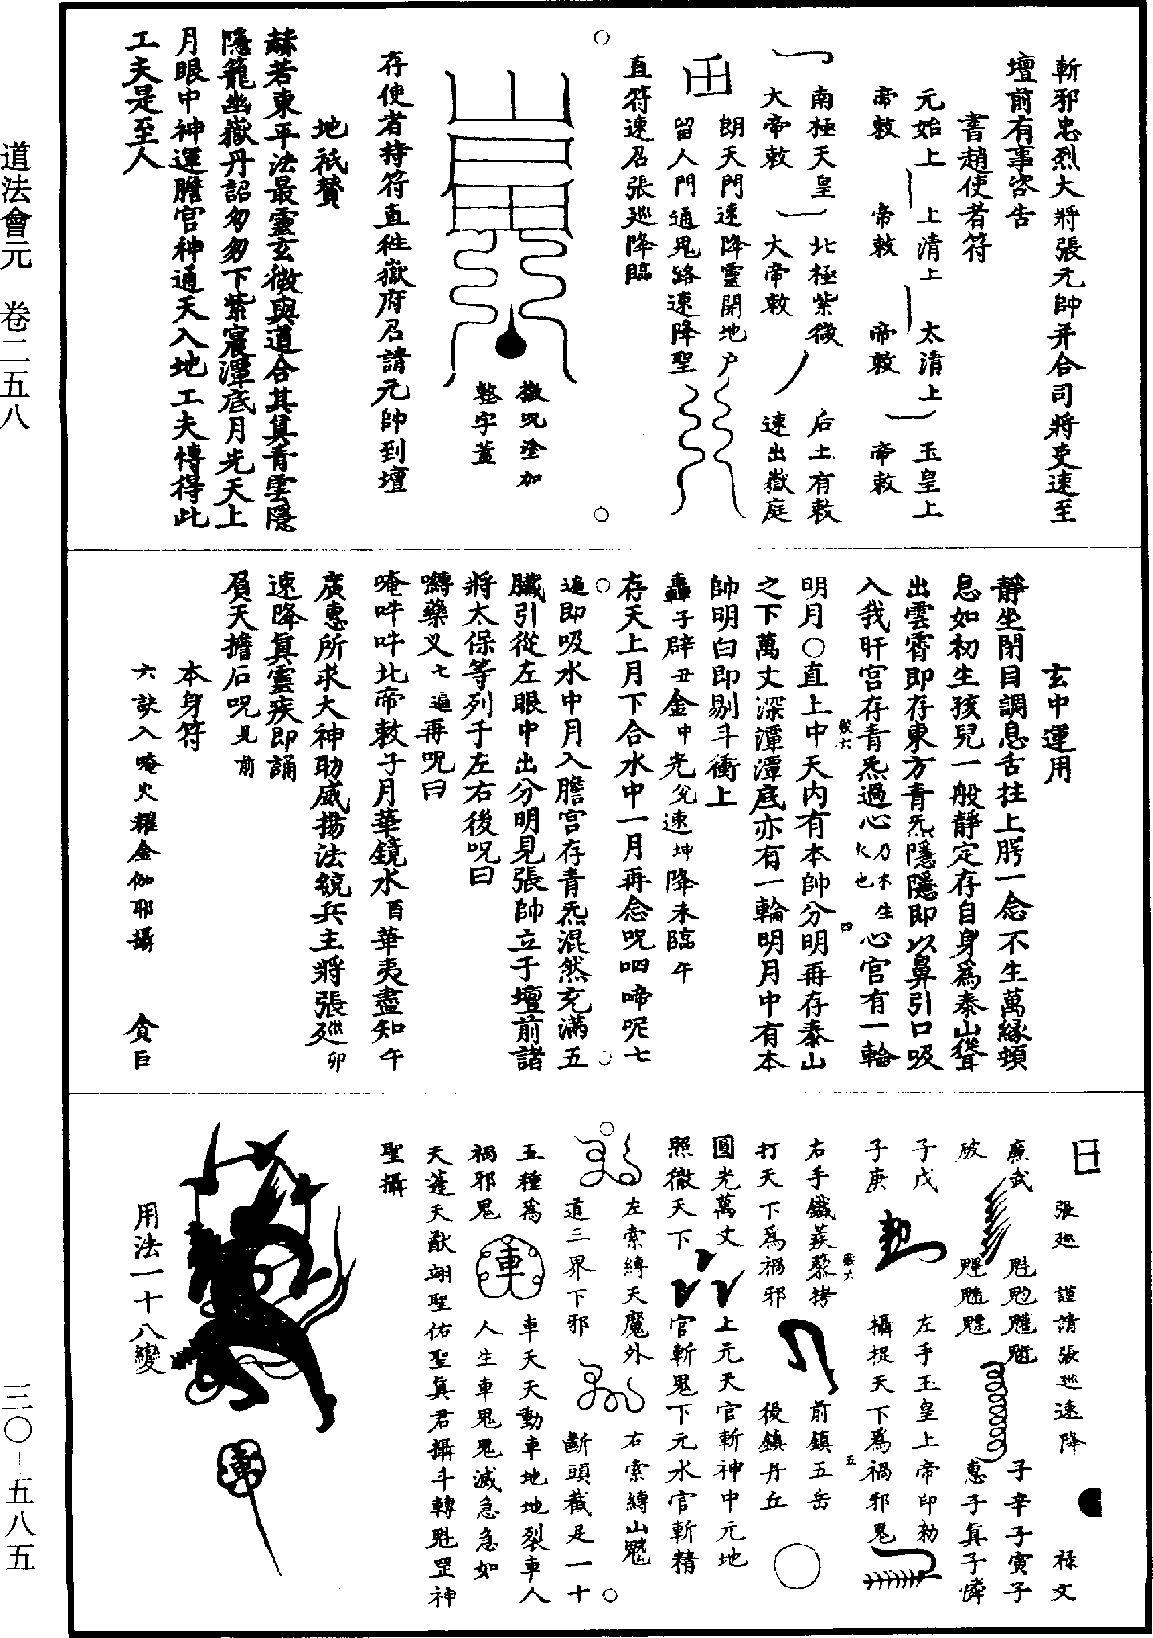 道法會元　卷二五八
三〇－五八五
斬邪忠烈大將張元帥并合司將吏速至
壇前有事咨告
書趙使者符
元始上　上清上　太清上　玉皇上
帝敕　帝敕　帝敕　帝敕
南極天皇　北極紫微　后土有敕
大帝敕　大帝敕　速出嶽庭
朗天門速降靈開地户
留人門通鬼路速降聖
直符速召張巡降臨
徽呪塗加
整字蓋
存使者持符直往嶽府召請元帥到壇
地祇贊
赫若東平法最靈玄微與道合其真青雲隱
隱籠幽嶽丹詔匆匆下紫宸潭底月光天上
月眼中神運膽宮神通天入地工夫慱得此
工夫是至人
玄中運用
靜坐閉目調息舌拄上腭一念不生萬緣頓
息如初生孩兒一般靜定存自身爲泰山聳
出雲霄即存東方青炁隱隱即以鼻引口吸
入我肝宮存青炁過心乃木生火也心宮有一輪
明月〇直上中天內有本帥分明再存泰山
之下萬丈深潭潭底亦有一輪明月中有本
帥明白即剔斗衝上
轟子辟丑金中光兌速坤降未臨午
存天上月下合水中一月再念呪呬啼呢七
遍即吸水中月入膽宮存青炁混然充滿五
臟引從左眼中出分明見張帥立于壇前諸
將太保等列于左右後呪曰
囀藥叉七遍再呪曰
唵吽吽北帝敕子月華鏡水酉華夷盡知午
廣惠所求大神助威揚法統兵主將張巡卯
速降真靈疾即誦
眉天擔石呪見前
本身符
六訣入唵火耀金伽耶攝　貪巨
張巡　謹請張巡速降　祿文
廉武　魁𩲃魓魒　子辛子寅子
破　惠子真子㤙
子戊　左手玉皇上帝印勑
子庚　攝捉天下爲禍邪鬼
右手鐵蒺藜拷　前鎮五岳
打天下爲禍邪　後鎮丹丘
圓光萬丈　上元天官斬神中元地
照徹天下　官斬鬼下元水官斬精
左索縛天魔外　右索縛山魈
道三界下邪　斷頭截足一十
五種爲　車天天動車地地裂車人
禍邪鬼　車　人生車鬼鬼滅急急如
天蓬天猷翊聖佑聖真君攝斗轉魁罡神
聖攝
用法一十八變